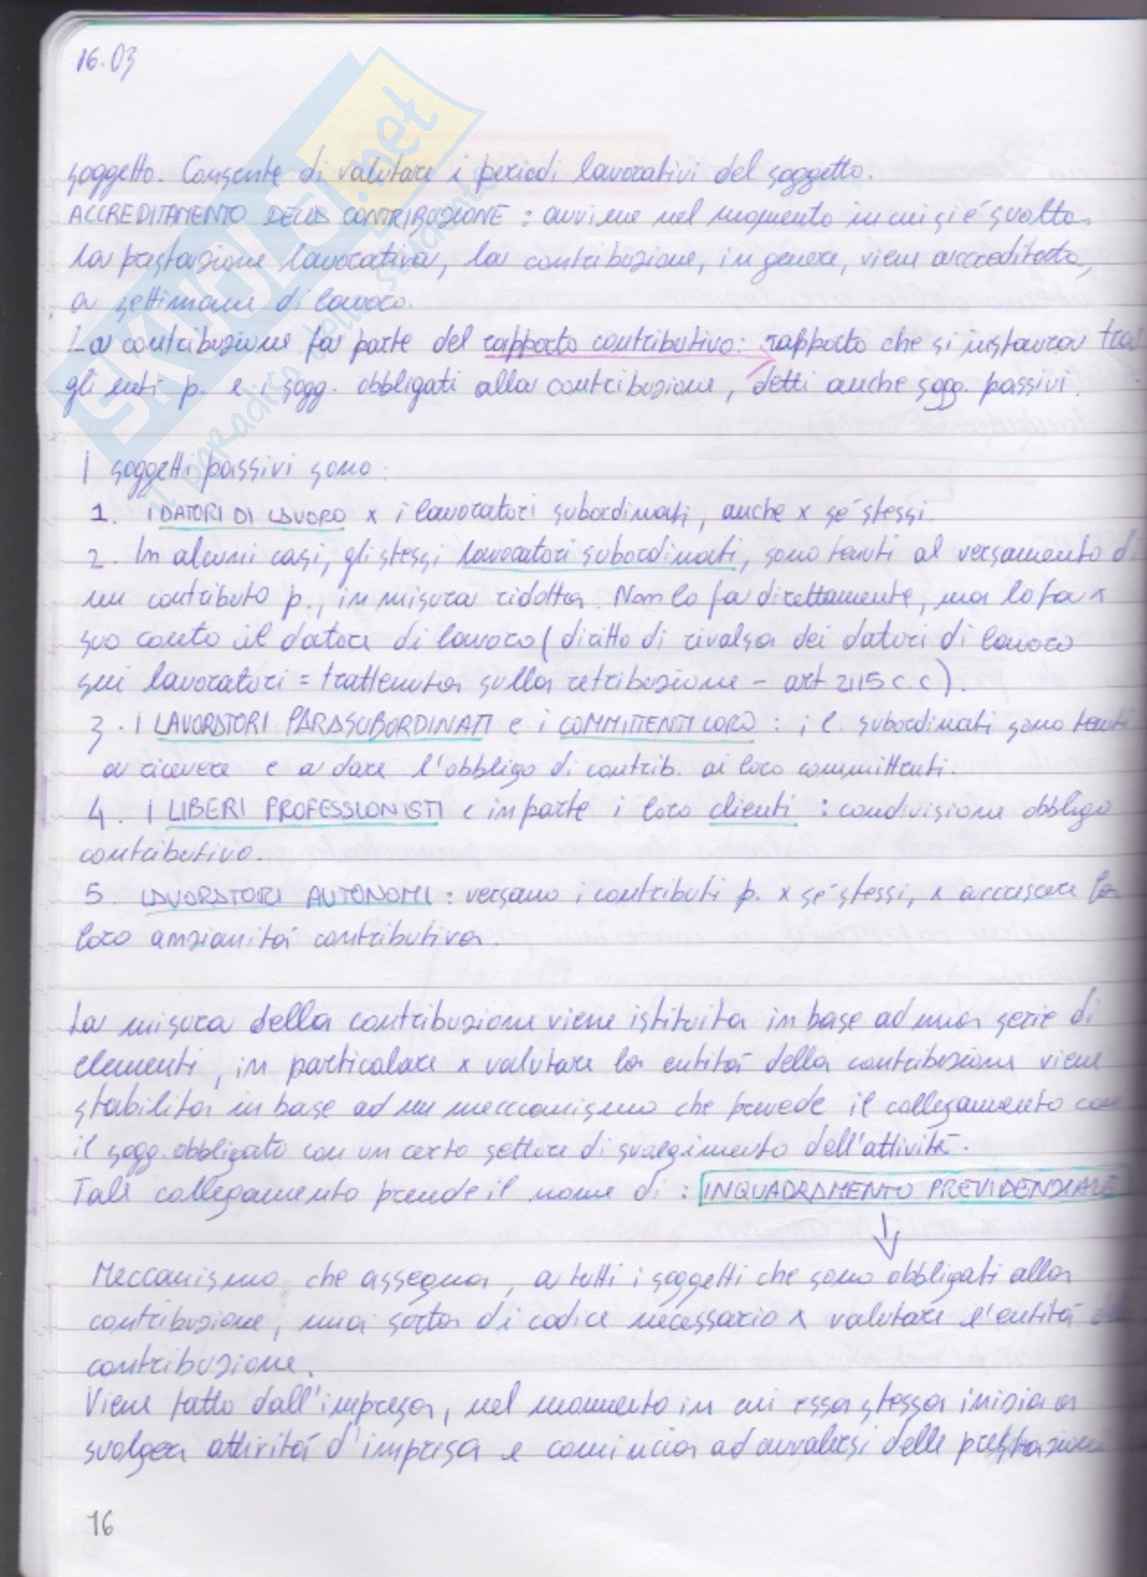 16.03
SKUOLA.net
soggetto. Consente di valutare i periodi lavorativi del soggetto.
ACCREDITAMENTO DELLA CONTRIBUZIONE : avviene nel momento in cui si è svolta
la prestazione lavorativa, la contribuzione, in genere, viene accreditata,
a settimane di lavoro.
La contribuzione fa parte del rapporto contributivo: rapporto che si instaura tra
gli enti p. e i sogg. obbligati alla contribuzione, detti anche sogg. passivi.
I soggetti passivi sono:
1. i DATORI DI LAVORO x i lavoratori subordinati, anche x sé stessi.
2. In alcuni casi, gli stessi lavoratori subordinati, sono tenuti al versamento di
un contributo p., in misura ridotta. Non lo fa direttamente, ma lo fa x
suo conto il datore di lavoro (diritto di rivalsa dei datori di lavoro
sui lavoratori = trattenuta sulla retribuzione - art 2115 c.c).
3. I LAVORATORI PARASUBORDINATI e i COMMITTENTI LORO : i l. subordinati sono tenuti
a ricevere e a dare l'obbligo di contrib. ai loro committenti.
4. I LIBERI PROFESSIONISTI e in parte i loro clienti : condivisione obbligo
contributivo.
5. LAVORATORI AUTONOMI : versano i contributi p. x sé stessi, x accrescere la
loro anzianità contributiva.
La misura della contribuzione viene istituita in base ad una serie di
elementi, in particolare x valutare la entità della contribuzione viene
stabilita in base ad un meccanismo che prevede il collegamento con
il sogg. obbligato con un certo settore di svolgimento dell'attività.
Tale collegamento prende il nome di : INQUADRAMENTO PREVIDENZIALE
Meccanismo che assegna, a tutti i soggetti che sono obbligati alla
contribuzione, una sorta di codice necessario x valutare l'entità
contribuzione.
Viene fatto dall'impresa, nel momento in cui essa stessa inizia a
svolgere attività d'impresa e comincia ad avvalersi delle prestazioni
16